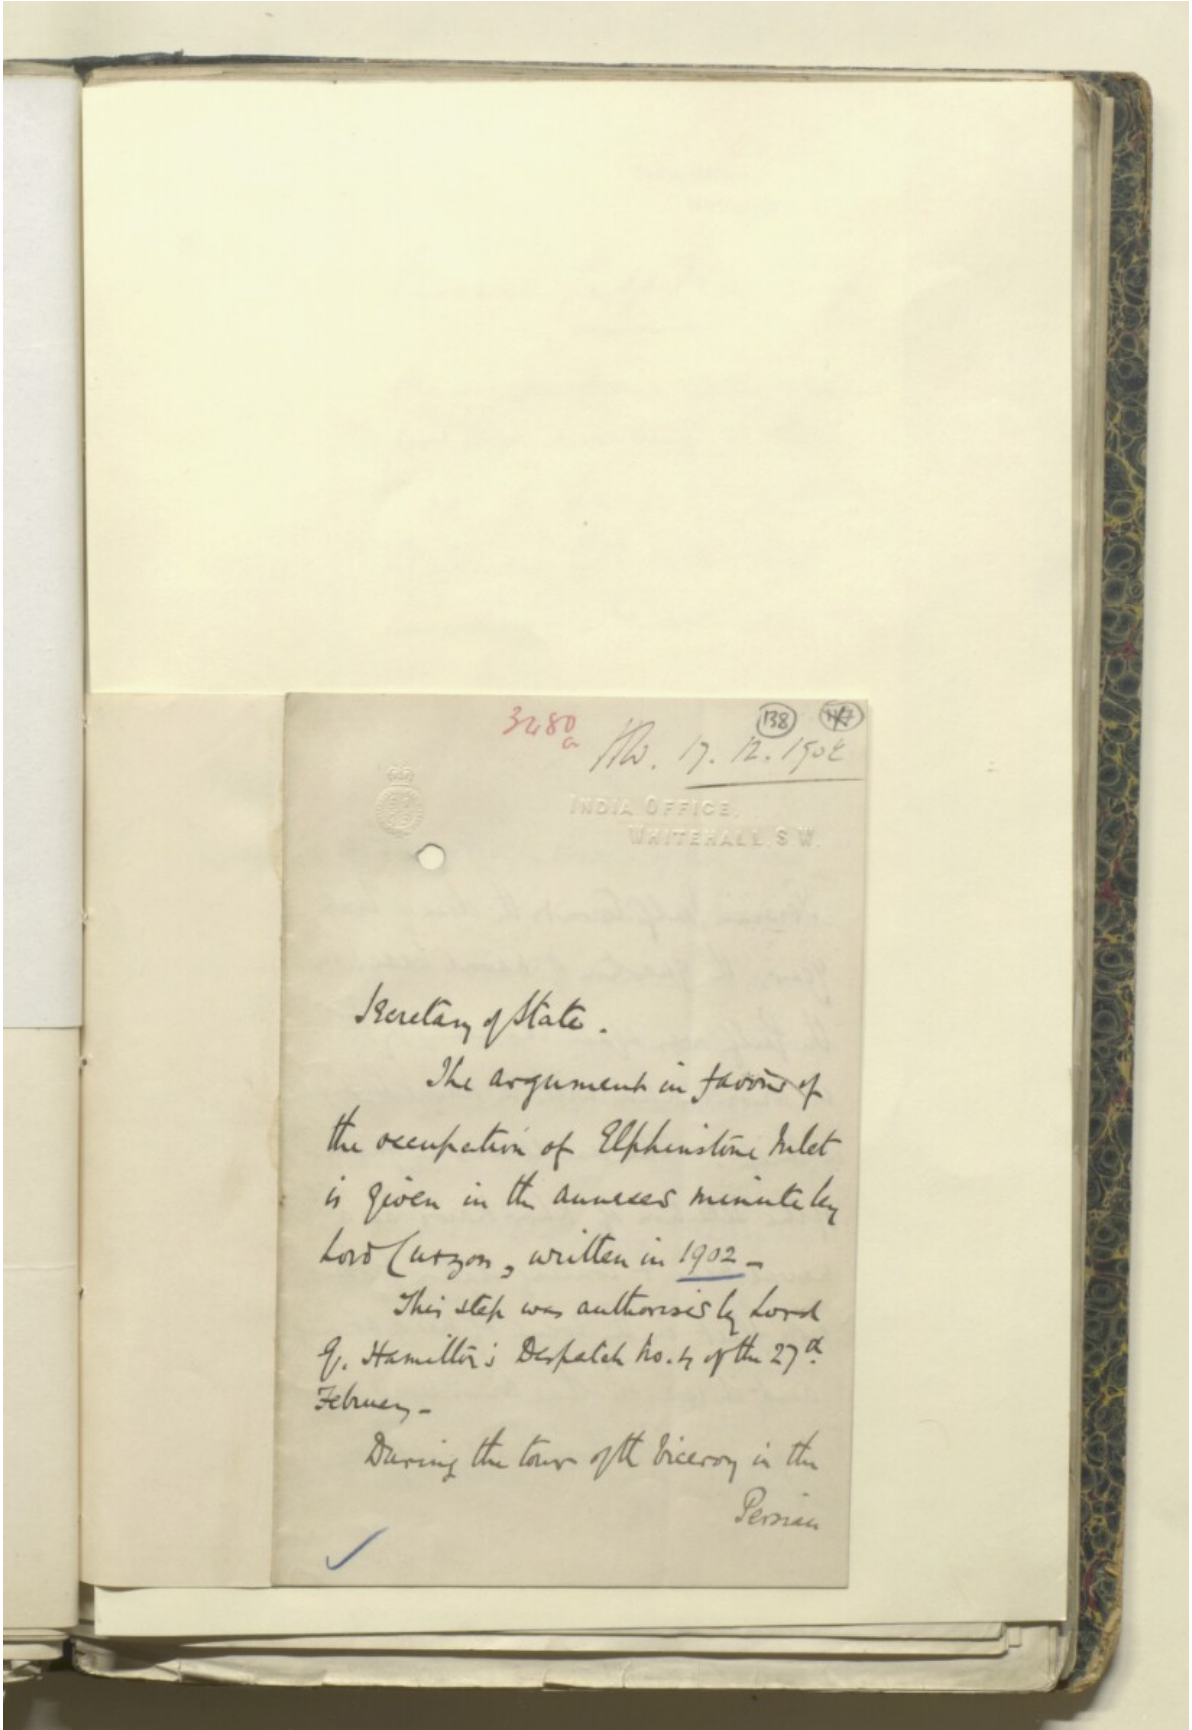 3280
a
138
17. 12. 1904
INDIA OFFICE,
WHITEHALL. S.W.
Secretary of State.
The argument in favour of
the occupation of Elphinstone Inlet
is given in the annexed minute by
Lord Curzon, written in 1902 -
This step was authorised by Lord
G. Hamilton's Despatch No. 4 of the 27th
February -
During the tour of the Viceroy in the
Persian